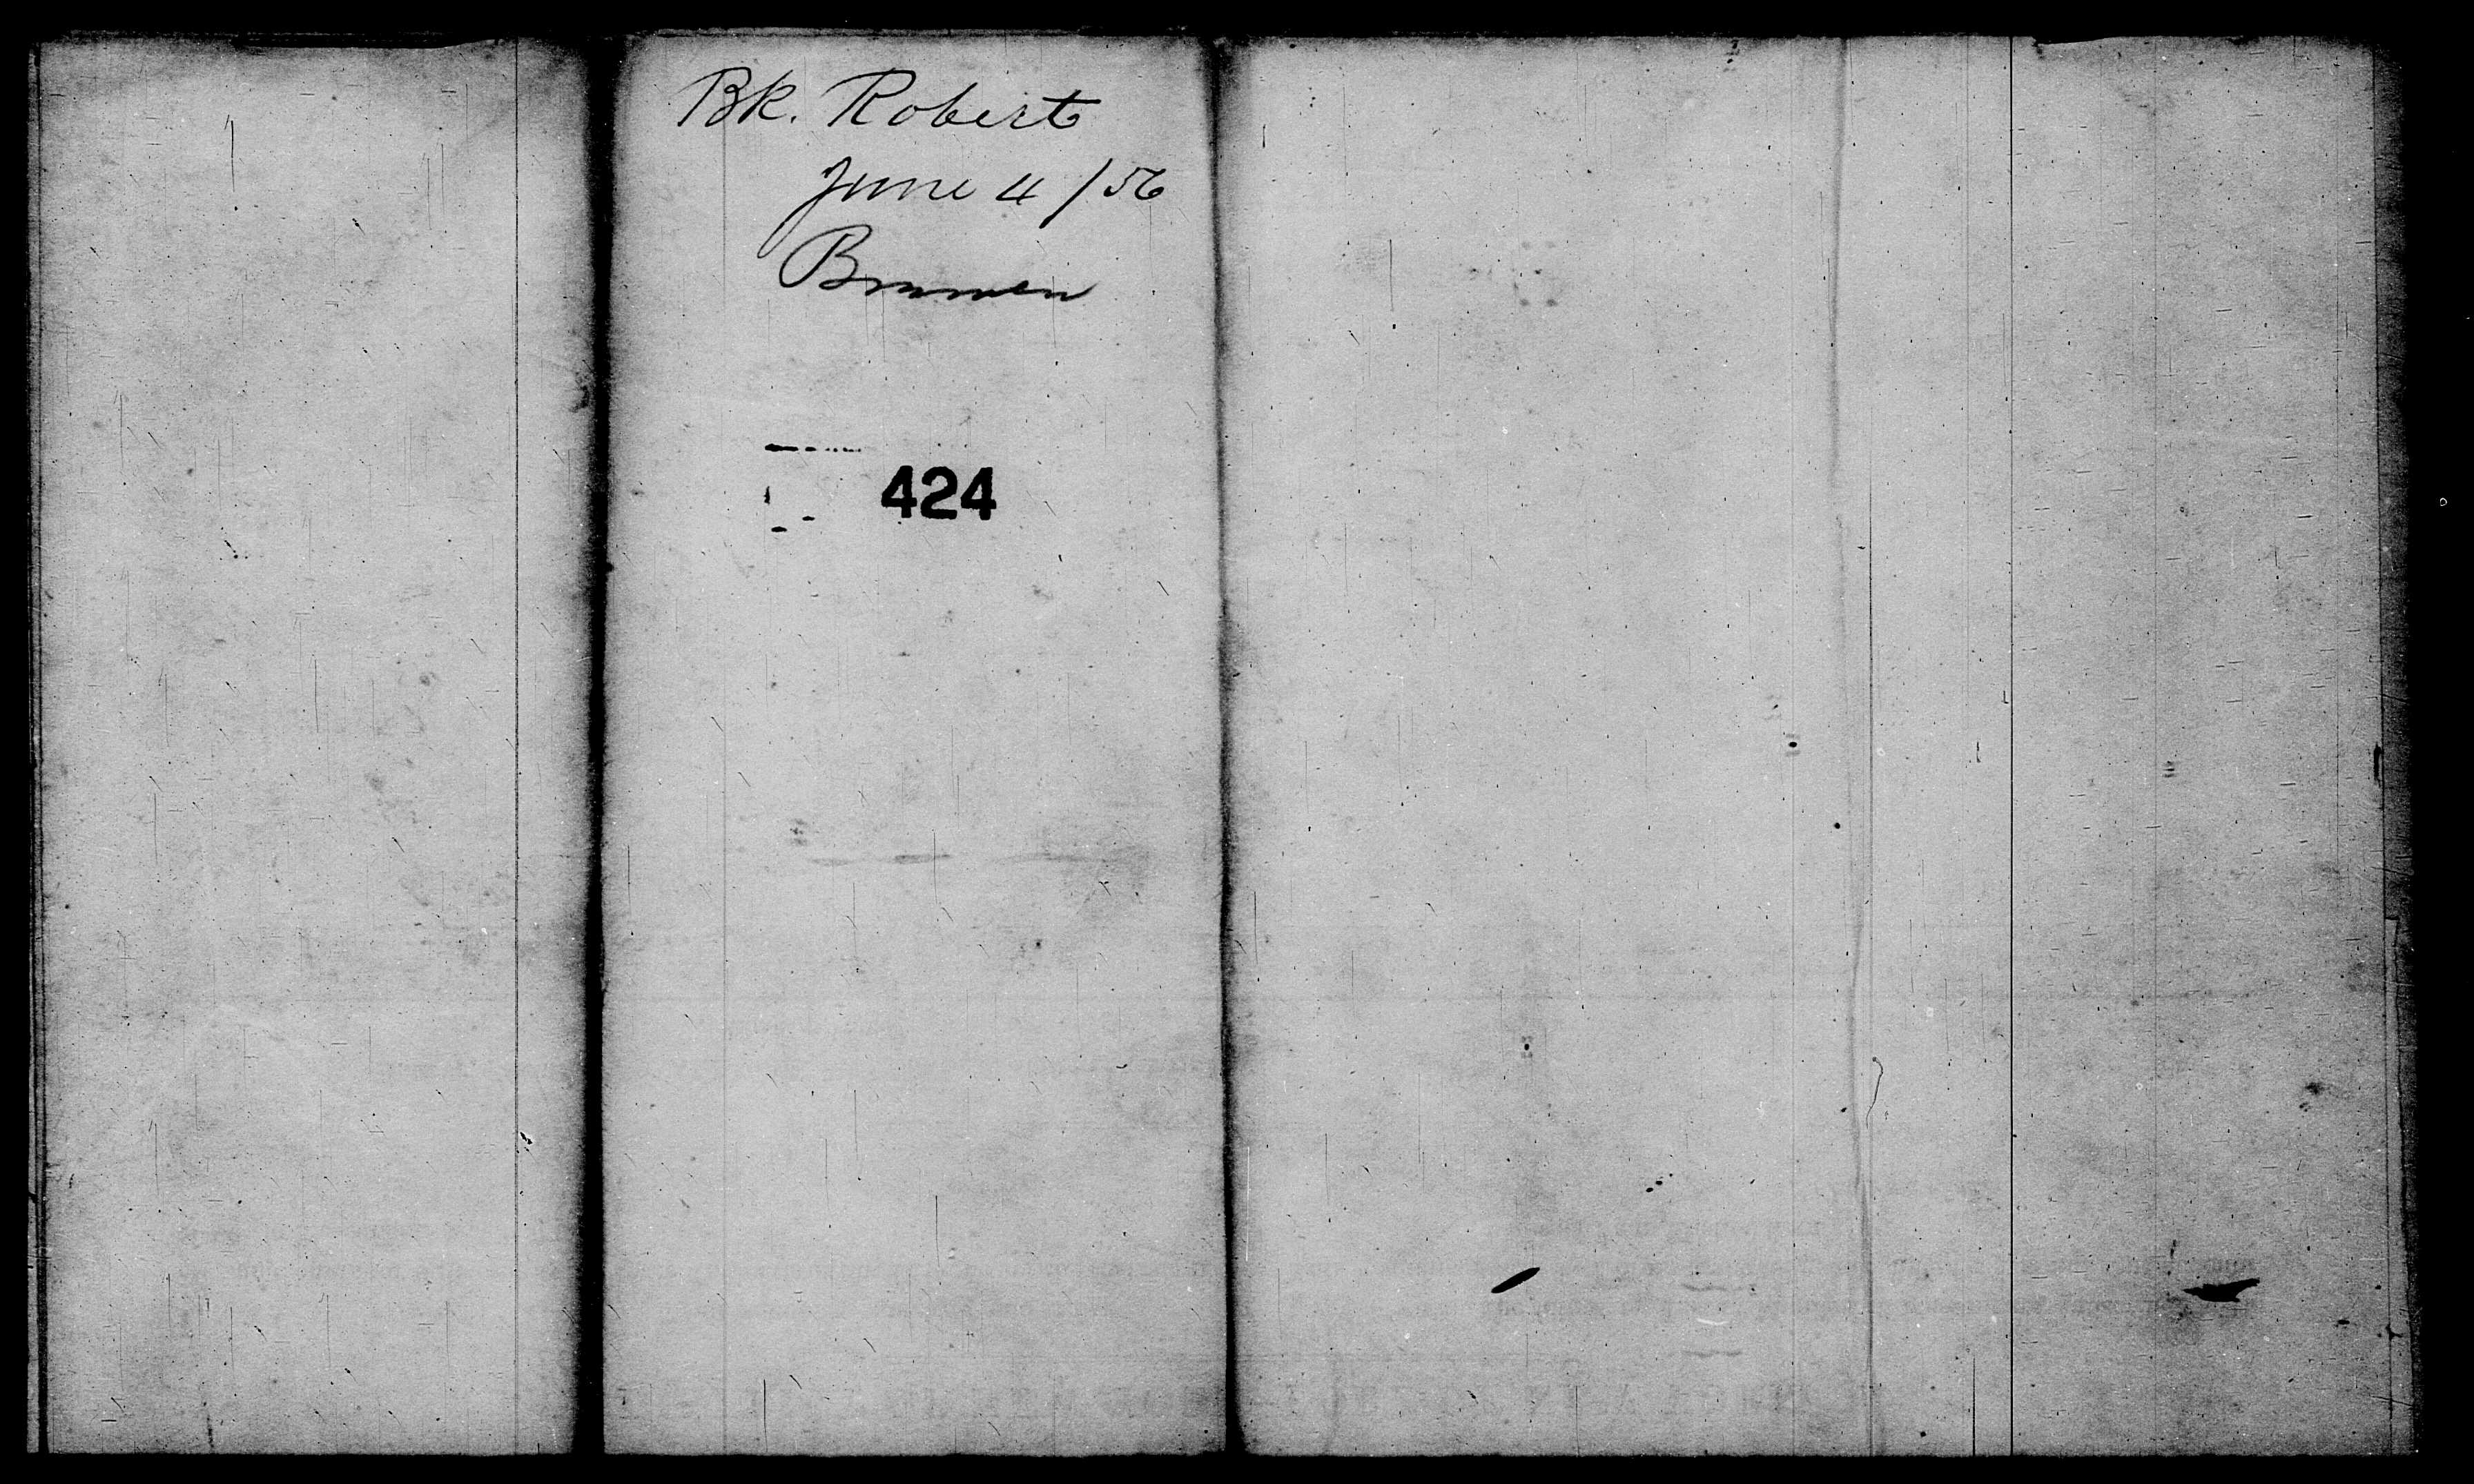 Bk. Robert
June 4/56
Bremen
424